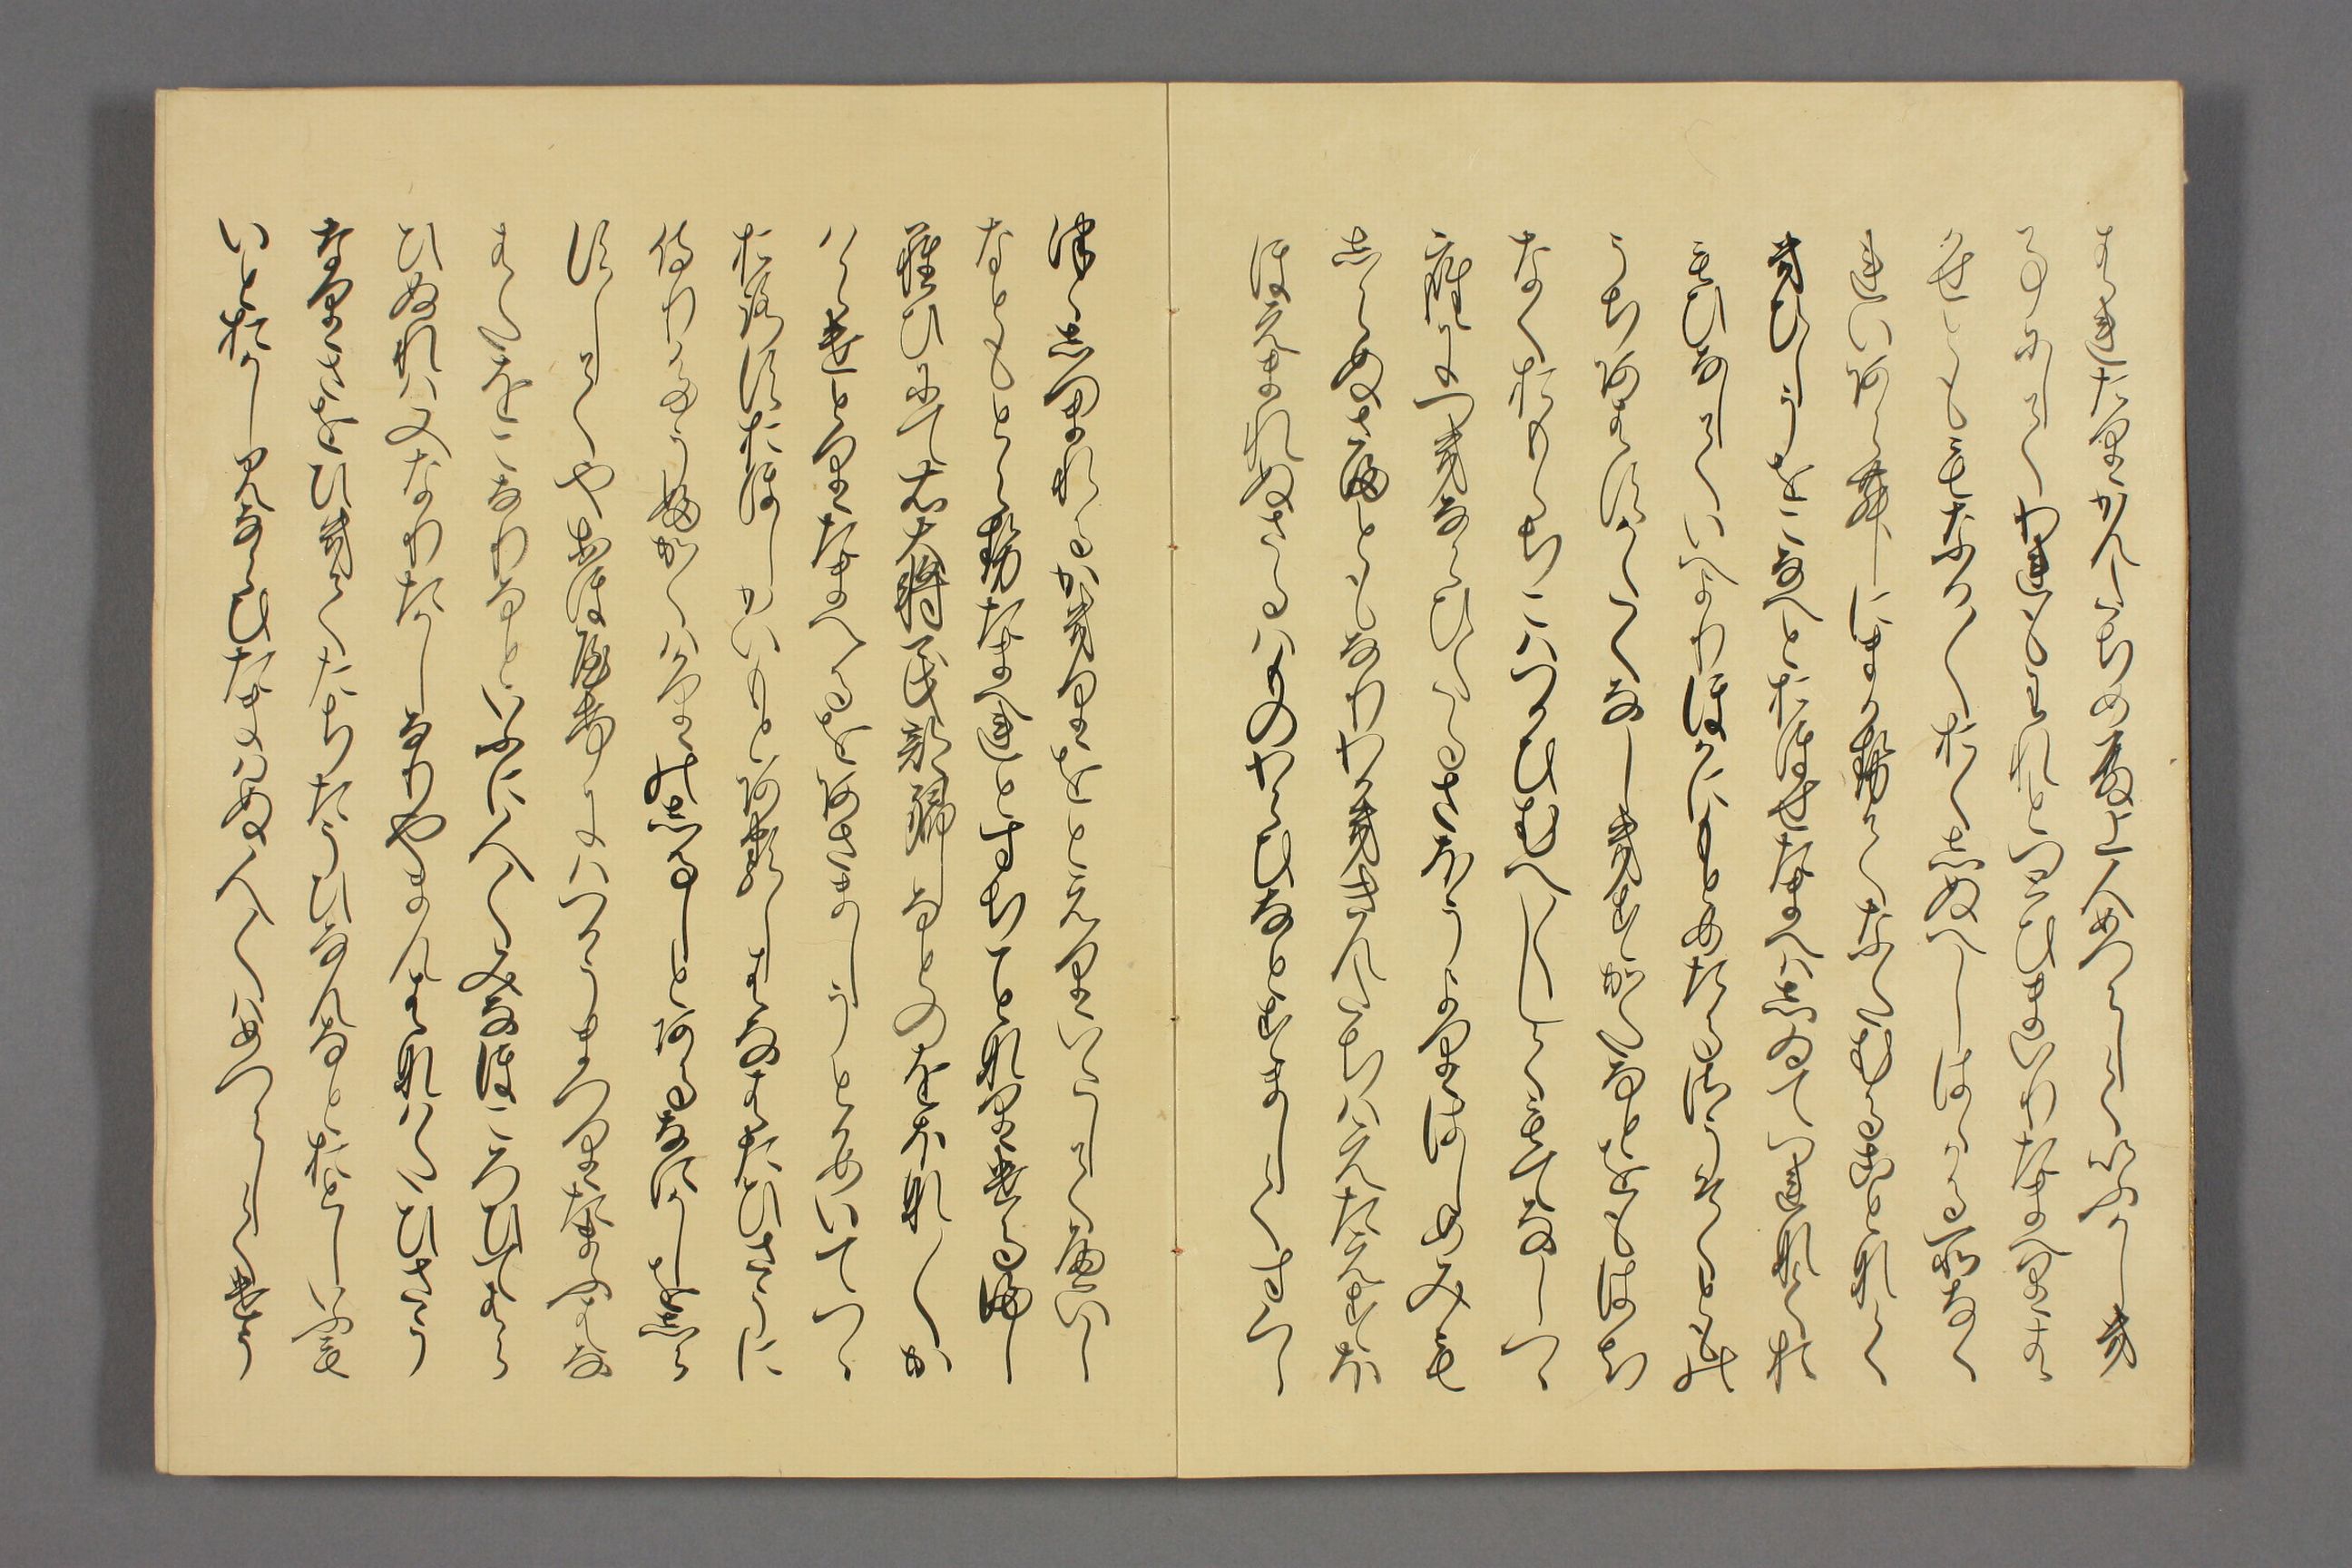 すきたりかんたちめ殿上人めつらしくいふかしき
事にしてわれも〱とつとひまいりたまへりは
かせとももなか〱おくしぬへしはゝかる所なく
れいあらむにまかせてなたむることなく
きひしうをこなへとおほせたまへはしゐてつれなくお
もひなしていへよりほかにもとめたるさうそくともの
うちあはすかたくなしきすかたなとをもはち
なくおもゝちこはつかひむへ〱しくもてなしつゝ
座につきならひたるさほうよりはしめみも
しらぬさまともなりわかききんたちはえたえすほ
ほえまれぬさるはものわらひなとすましくすくし
つゝしつまれるかきりをとえりいたしてへいし
なともとらせたまへれとすちことなりけるまし
らひにて右大将民部卿なとのおほな〱か
はらけとりたまへるをあさましうとかめいてつゝ
おろすおほしかいもとあるしはなはたひさうに
侍りたうふかくはかりのしるしとあるなにかしをしら
すしてやおほやけにはつかうまつりたまふはな
はたをこなりなといふに人〱みなほころひてわら
ひぬれは又なりたかしなりやまんはなはたひさう
なりさをひきてたちたうひなんなとおとしいふも
いとおかし見ならひたまはぬ人〱はめつらしくけう